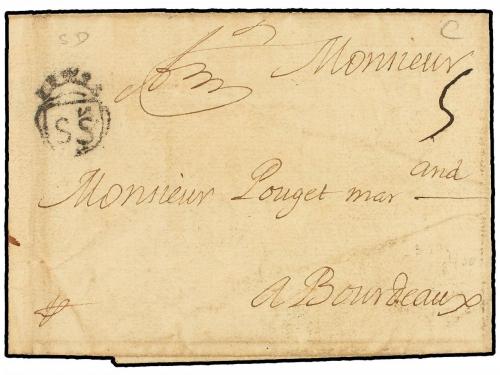 SD
C
Monsieur
5
SS
Monsieur Pouget mar and
a Bourdeaux